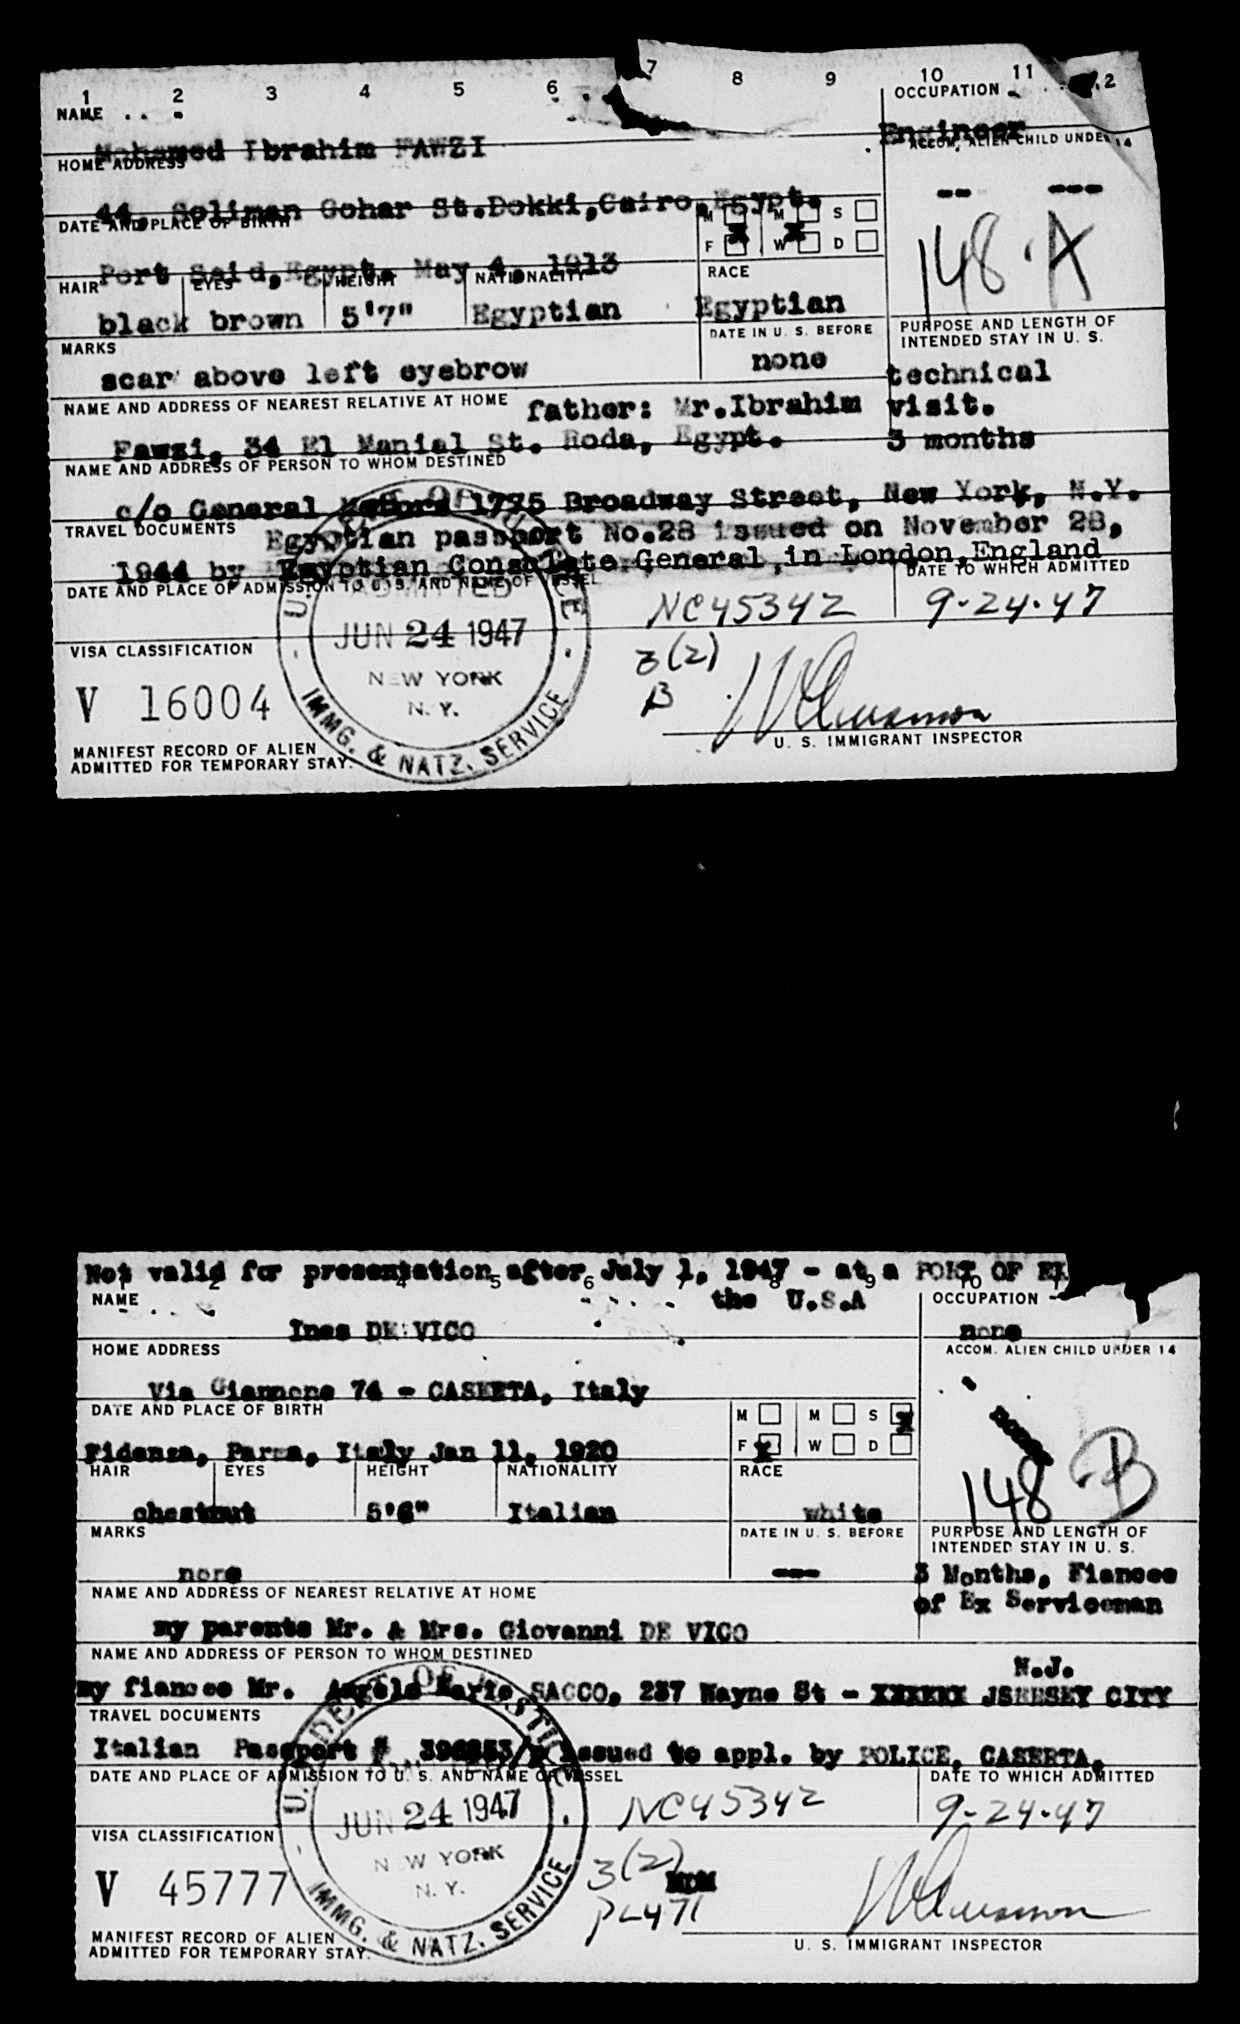 1 2 3 4 5 6 7 8 9 10 11 12
NAME OCCUPATION
Mohamed Ibrahim FAWZI Engineer
HOME ADDRESS ACCOM. ALIEN CHILD UNDER 14
44, Soliman Gohar St.Dokki,Cairo,Egypt. -- ---
DATE AND PLACE OF BIRTH M M S
F W D
148-A
Port Said,Egypt. May 4, 1913
HAIR EYES HEIGHT NATIONALITY RACE
black brown 5'7" Egyptian Egyptian
MARKS DATE IN U. S. BEFORE PURPOSE AND LENGTH OF
INTENDED STAY IN U. S.
scar above left eyebrow none technical
NAME AND ADDRESS OF NEAREST RELATIVE AT HOME father: Mr.Ibrahim visit.
Fawzi, 34 El Manial St. Roda, Egypt. 3 months
NAME AND ADDRESS OF PERSON TO WHOM DESTINED
c/o General Motors 1775 Broadway Street, New York, N.Y.
TRAVEL DOCUMENTS Egyptian passport No.28 issued on November 28,
1944 by Egyptian Consulate General,in London,England
DATE AND PLACE OF ADMISSION TO U. S. AND NAME OF VESSEL DATE TO WHICH ADMITTED
NC45342 9-24-47
U. S. DEPT. OF JUSTICE
ADMITTED
JUN 24 1947
NEW YORK
N. Y.
IMMG. & NATZ. SERVICE
VISA CLASSIFICATION 3(2)
V 16004 B
U. S. IMMIGRANT INSPECTOR
MANIFEST RECORD OF ALIEN
ADMITTED FOR TEMPORARY STAY.
Not valid for presentation after July 1, 1947 - at a PORT OF
2 4 5 6 7 8 9 10
the U.S.A
NAME OCCUPATION
Ines DE VICO none
HOME ADDRESS ACCOM. ALIEN CHILD UNDER 14
Via Giannone 74 - CASERTA, Italy
DATE AND PLACE OF BIRTH M M S
F W D
Fidenza, Parma, Italy Jan 11, 1920
148 B
HAIR EYES HEIGHT NATIONALITY RACE
chestnut 5'6" Italian white
MARKS DATE IN U. S. BEFORE PURPOSE AND LENGTH OF
INTENDED STAY IN U. S.
none --- 3 Months, Fiancee
of Ex Serviceman
NAME AND ADDRESS OF NEAREST RELATIVE AT HOME
my parents Mr. & Mrs. Giovanni DE VICO
NAME AND ADDRESS OF PERSON TO WHOM DESTINED
N.J.
my fiancee Mr. Angelo Mario SACCO, 237 Wayne St - XXXXXX JSERSEY CITY
TRAVEL DOCUMENTS
Italian Passport # issued to appl. by POLICE, CASERTA,
DATE AND PLACE OF ADMISSION TO U. S. AND NAME OF VESSEL DATE TO WHICH ADMITTED
NC45342 9-24-47
U. S. DEPT. OF JUSTICE
JUN 24 1947
NEW YORK
N. Y.
IMMG. & NATZ. SERVICE
VISA CLASSIFICATION 3(2)
V 45777 PL471
U. S. IMMIGRANT INSPECTOR
MANIFEST RECORD OF ALIEN
ADMITTED FOR TEMPORARY STAY.